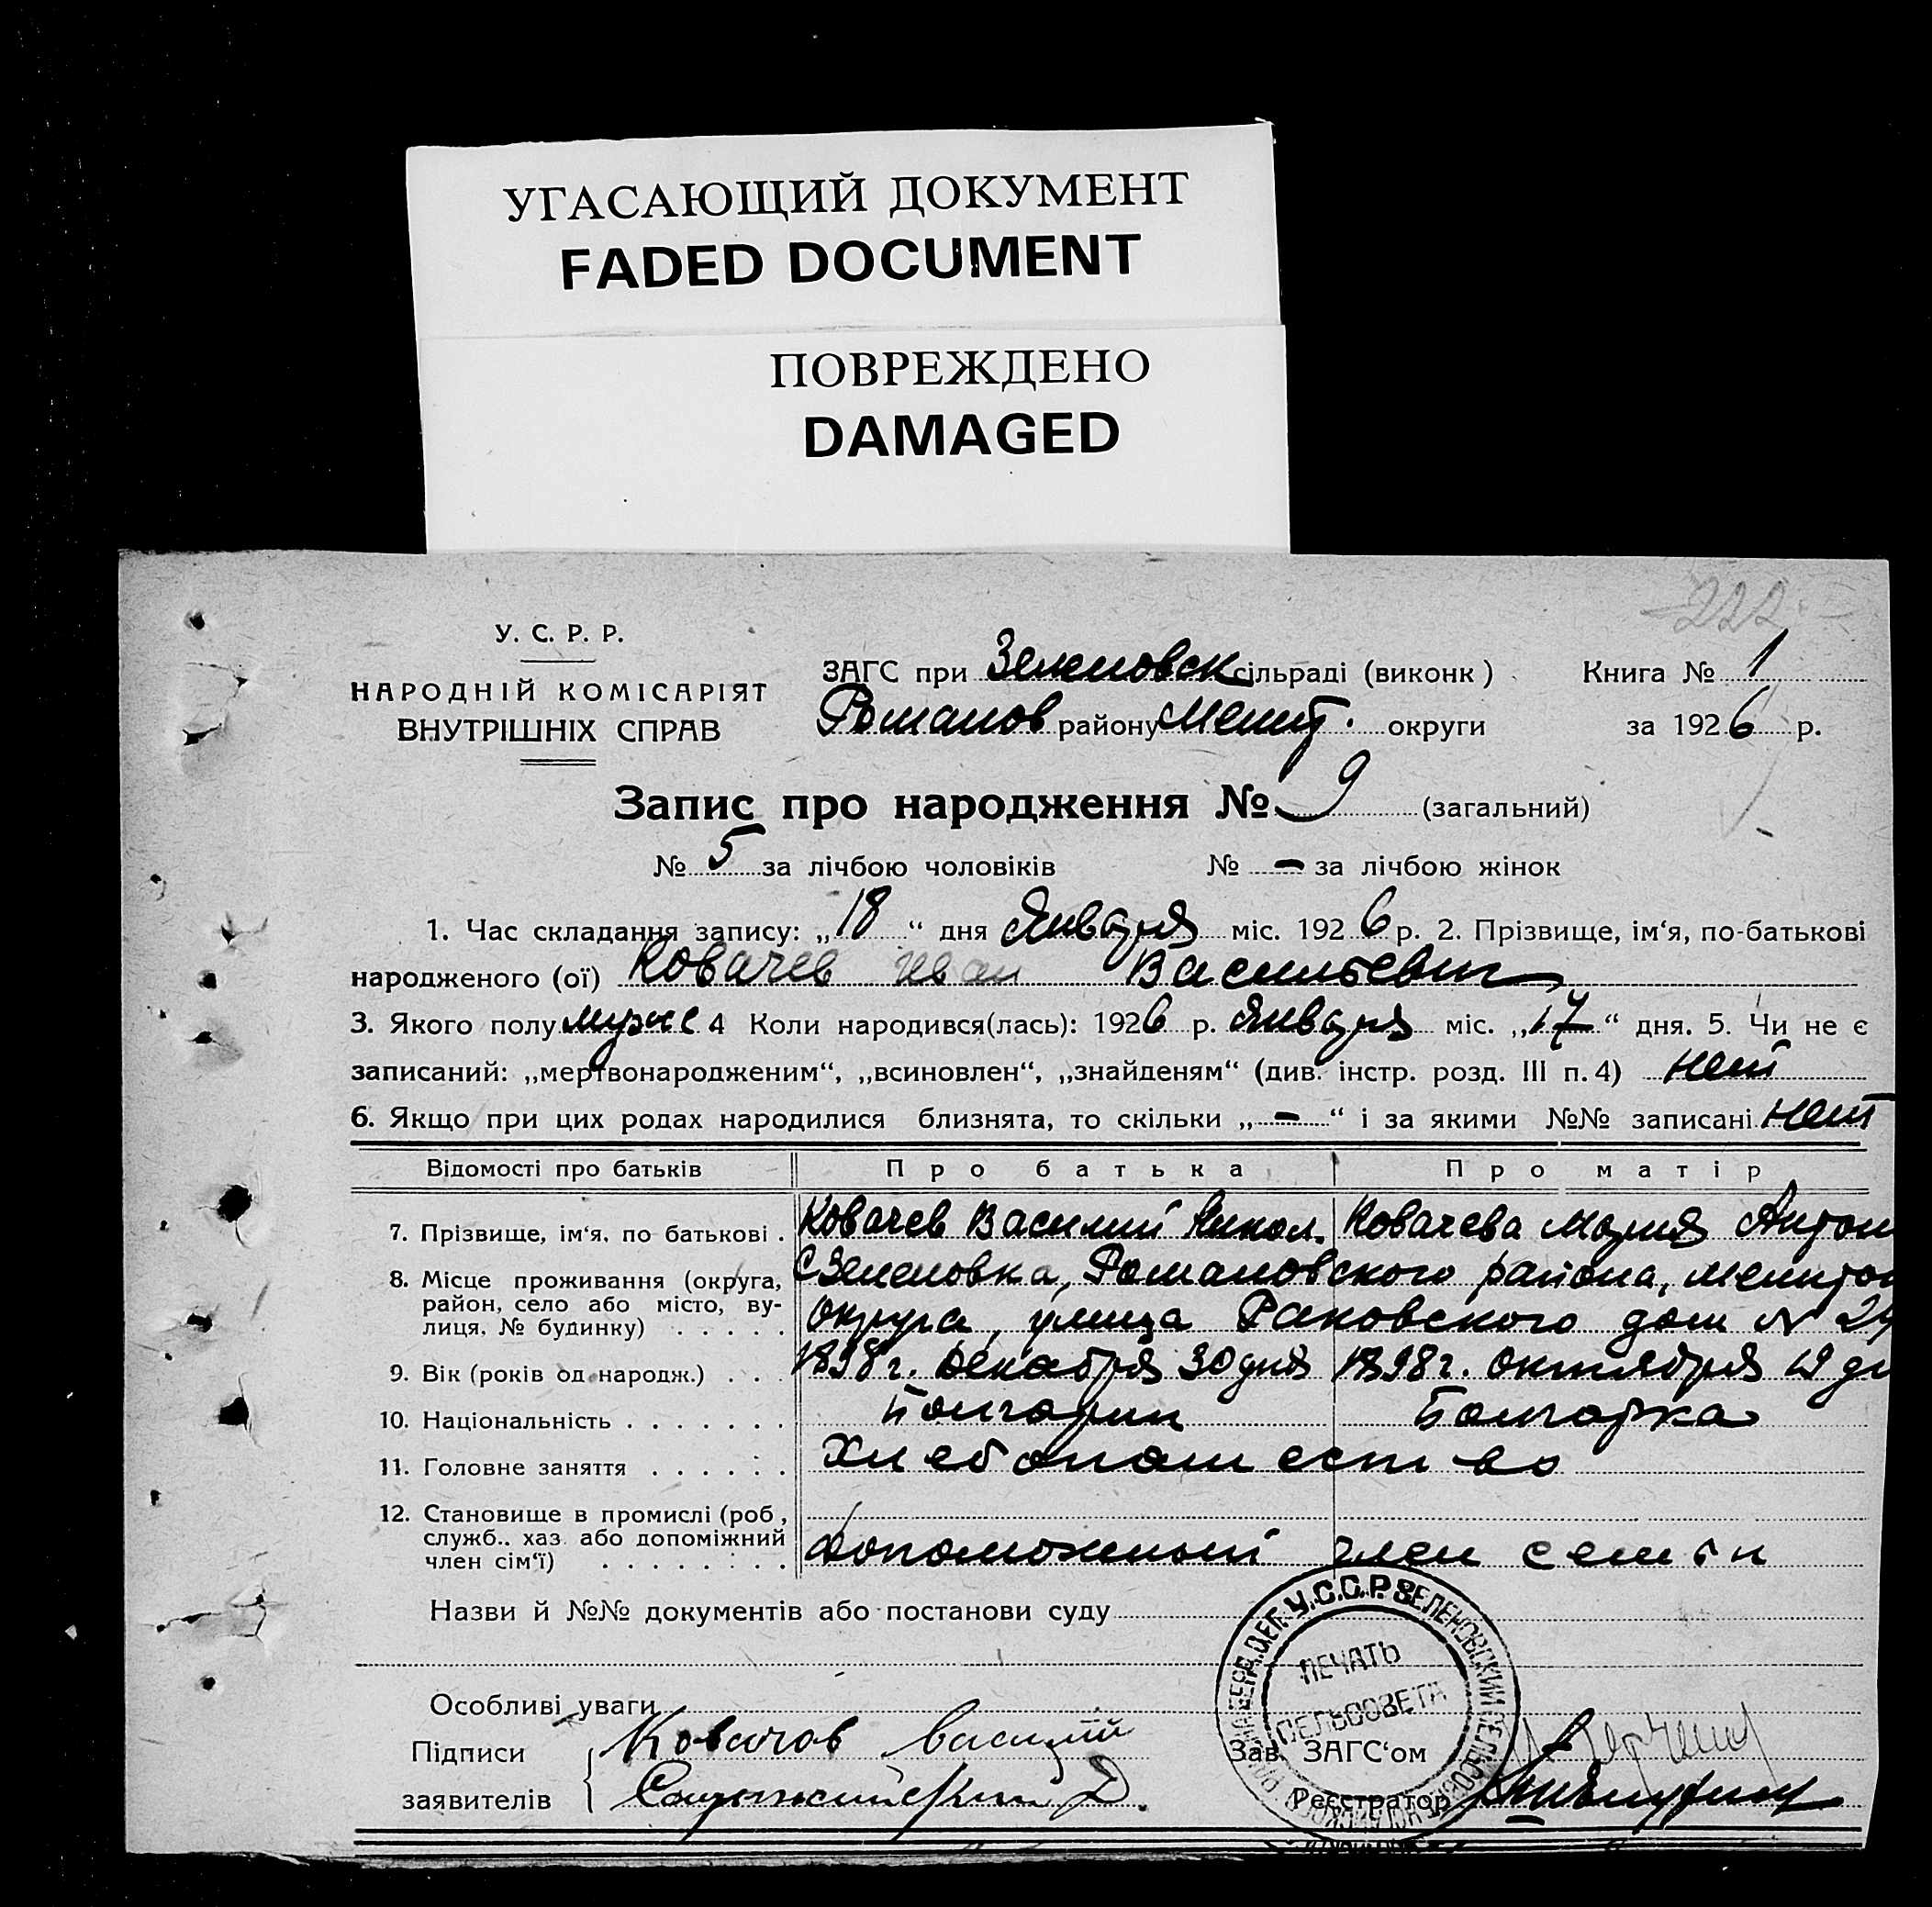 УГАСАЮЩИЙ ДОКУМЕНТ
FADED DOCUMENT
ПОВРЕЖДЕНО
DAMAGED
222
У. С. Р. Р.
НАРОДНІЙ КОМІСАРІЯТ
ВНУТРІШНІХ СПРАВ
ЗАГС при Зеленовск сільраді (виконк) Книга № 1
Романов району Мелит. округи за 1926 р.
Запис про народження № 9 (загальний)
№ 5 за лічбою чоловіків № — за лічбою жінок
1. Час складання запису: „18“ дня Января міс. 1926 р. 2. Прізвище, ім‘я, по-батькові
народженого (ої) Ковачев Иван Васильевич
3. Якого полу мужс 4 Коли народився(лась): 1926 р. Января міс. „17“ дня. 5. Чи не є
записаний: „мертвонародженим“, „всиновлен“, „знайденям“ (див. інстр. розд. III п. 4) нет
6. Якщо при цих родах народилися близнята, то скільки „—“ і за якими №№ записані нет
Відомості про батьків Про батька Про матір
7. Прізвище, ім‘я, по батькові . Ковачев Василий Никол. Ковачева Мария Антон
8. Місце проживання (округа, С Зеленовка, Романовского района, Мелитоп
район, село або місто, ву-
лиця, № будинку) . . . . . округа, улица Раковского дом №
9. Вік (років од народж.) . . . 1898 г. Декабря 30 дня 1898 г. Октября 19 дн
10. Національність . . . . . . . Болгарин Болгарка
11. Головне заняття . . . . . . Хлебопашество
12. Становище в промислі (роб,
служб.. хаз або допоміжний
член сім‘ї) . . . . . . . . Допоможный член семьи
Назви й №№ документів або постанови суду
Особливі уваги
Підписи Ковачов Василий
заявителів
Зав. ЗАГС‘ом
Реєстратор
У.С.С.Р. ЗЕЛЕНОВСКИЙ
ПЕЧАТЬ
СЕЛЬСОВЕТА